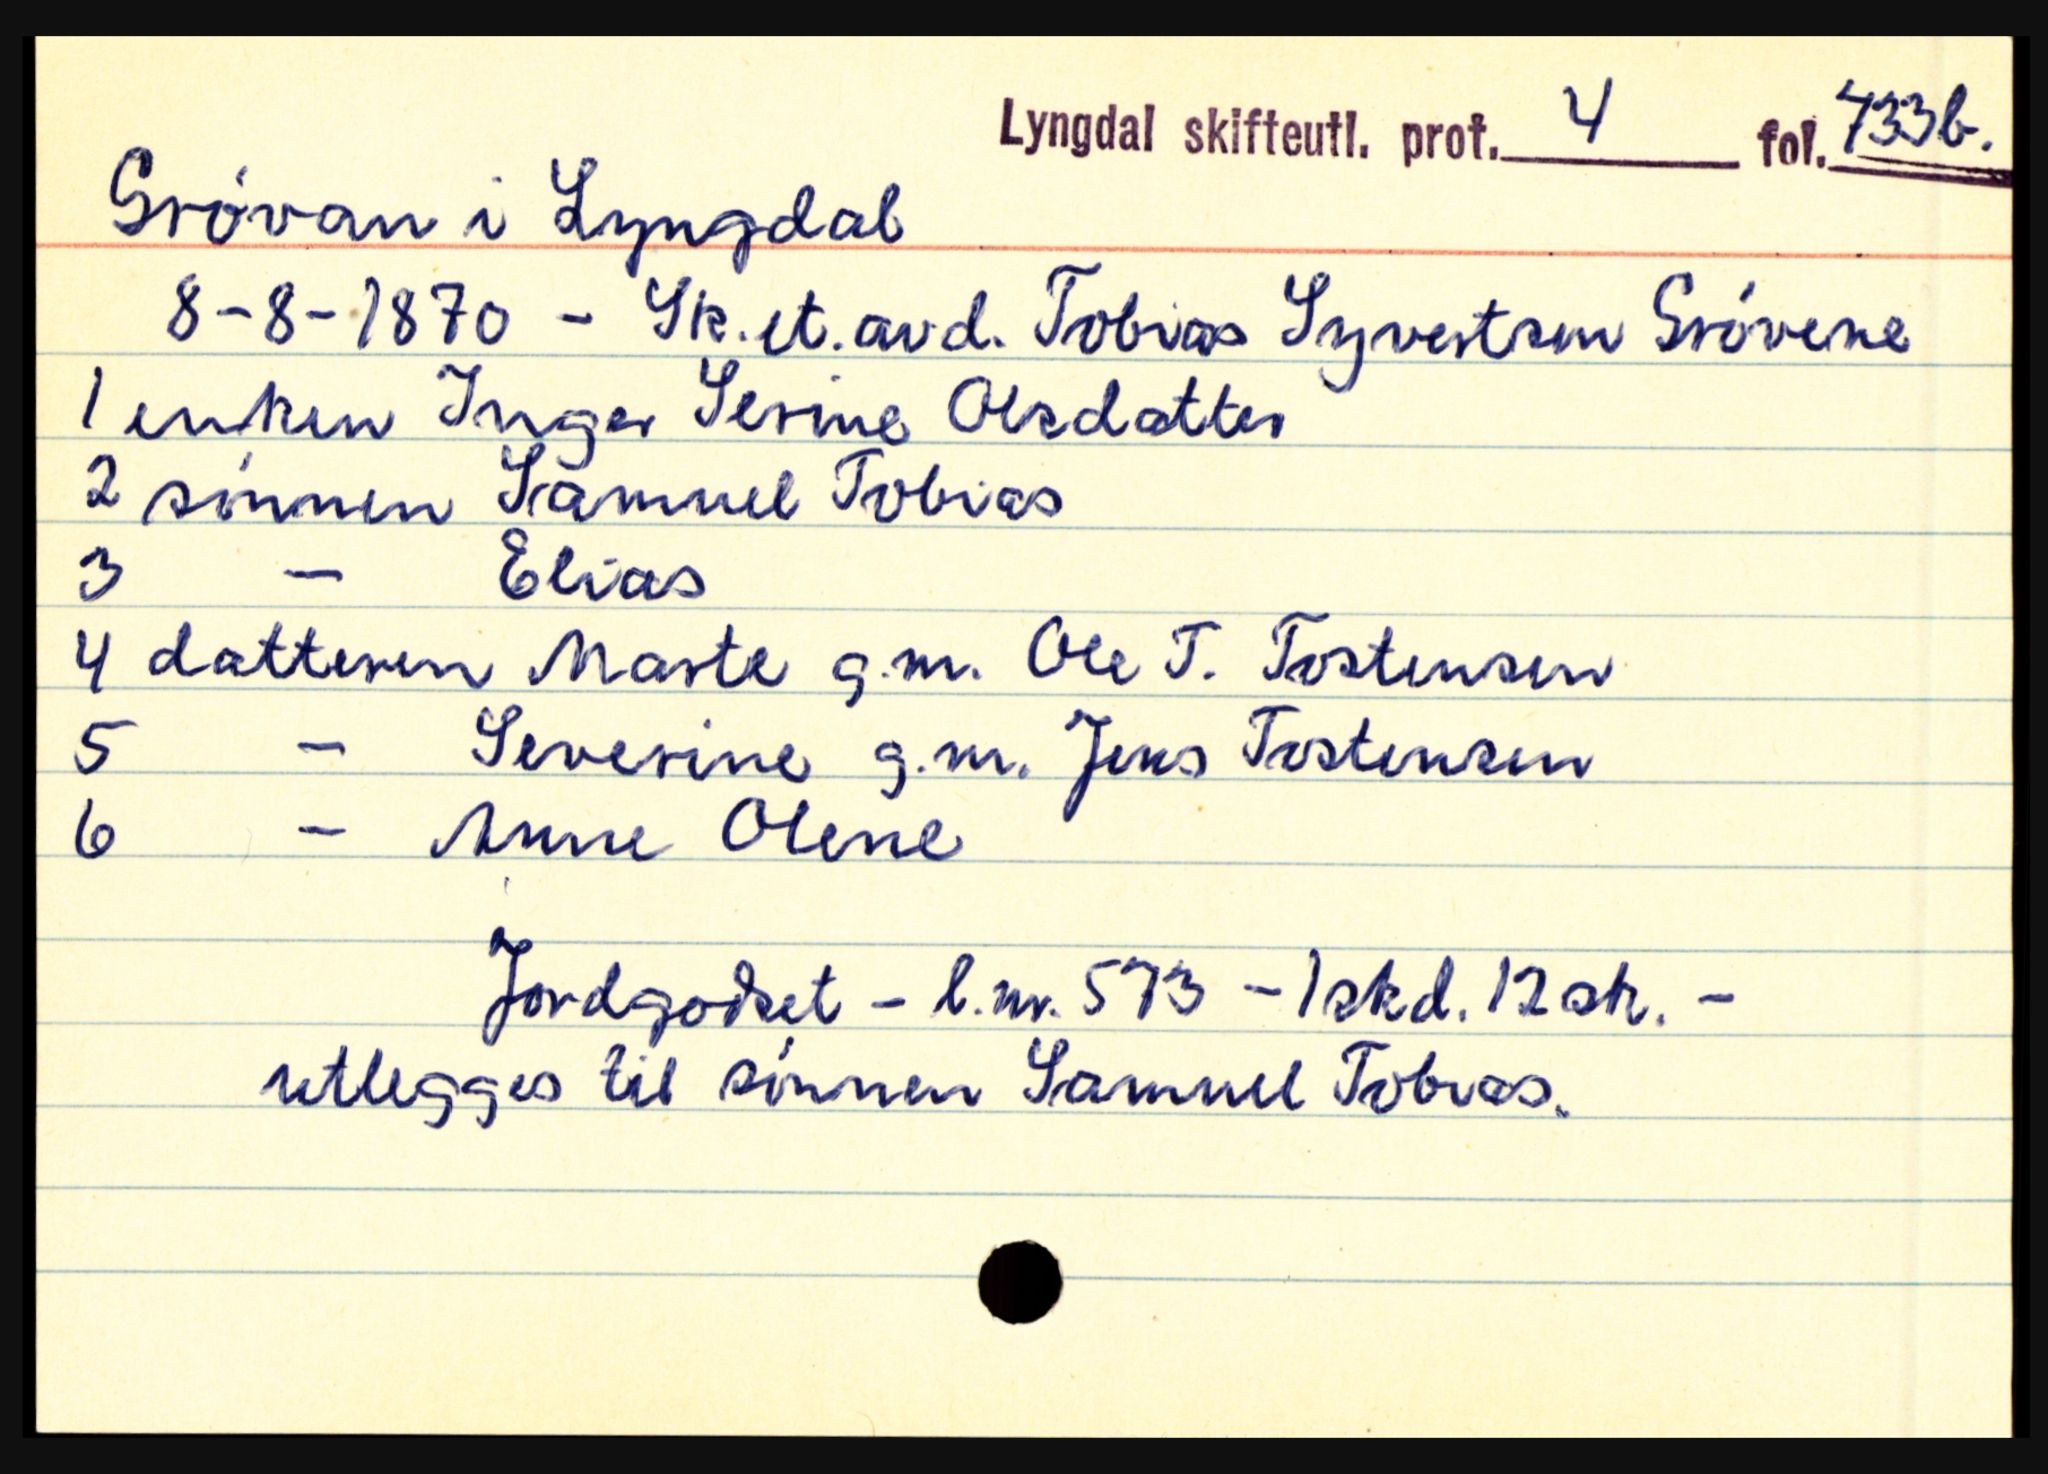 Lyngdal skifteutl. prot. 4 fol. 433b.
Gróvan i Lyngdal
8-8-1870 - Sk. et. avd. Tobias Syvertsen Gróvene
1 enken Inger Serine Olsdatter
2 sónnen Samuel Tobias
3 - Elias
4 datteren Marte g.m. Ole T. Tostensen
5 - Severine g.m. Jens Tostensen
6 - Anne Olene
Jordgodset - l.nr. 573 - 1 skd. 12 sk. -
utlegges til sónnen Samuel Tobias.